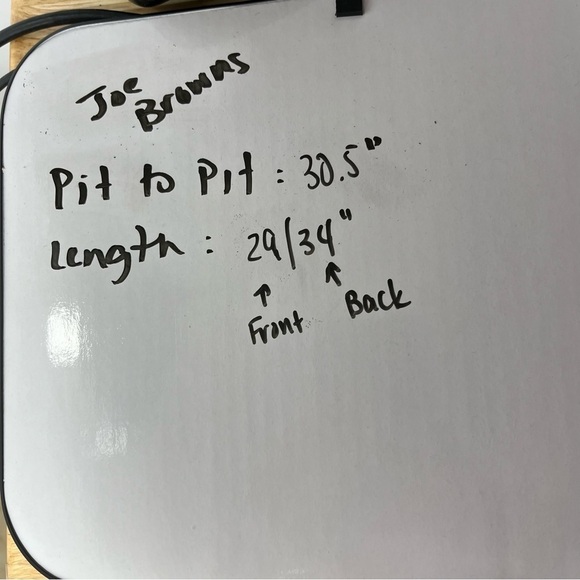 Joe
Browns
Pit to Pit : 30.5"
Length : 29/34"
↑ ↑
Front Back